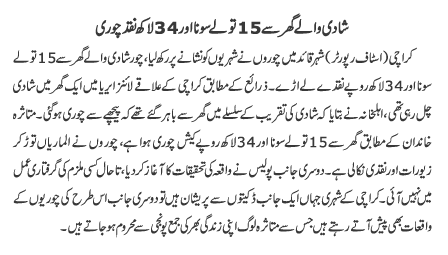 شادی والے گھر سے 15 تولے سونا اور 34 لاکھ نقد چوری
کراچی (اسٹاف رپورٹر) شہر قائد میں چوروں نے شہریوں کو نشانے پر رکھ لیا، چور شادی والے گھر سے 15 تولے
سونا اور 34 لاکھ روپے نقد لے اڑے۔ ذرائع کے مطابق کراچی کے علاقے لائنز ایریا میں ایک گھر میں شادی
چل رہی تھی، اہلخانہ نے بتایا کہ شادی کی تقریب کے سلسلے میں گھر سے باہر گئے تھے کہ پیچھے سے چوری ہوگئی۔ متاثرہ
خاندان کے مطابق گھر سے 15 تولے سونا اور 34 لاکھ روپے کیش چوری ہوا ہے، چوروں نے الماریاں توڑ کر
زیورات اور نقدی نکالی ہے۔ دوسری جانب پولیس نے واقعہ کی تحقیقات کا آغاز کردیا، تاحال کسی ملزم کی گرفتاری عمل
میں نہیں آئی۔ کراچی کے شہری جہاں ایک جانب ڈکیتوں سے پریشان ہیں تو دوسری جانب اس طرح کی چوریوں کے
واقعات بھی پیش آتے رہتے ہیں جس سے متاثرہ لوگ اپنی زندگی بھر کی جمع پونجی سے محروم ہوجاتے ہیں۔